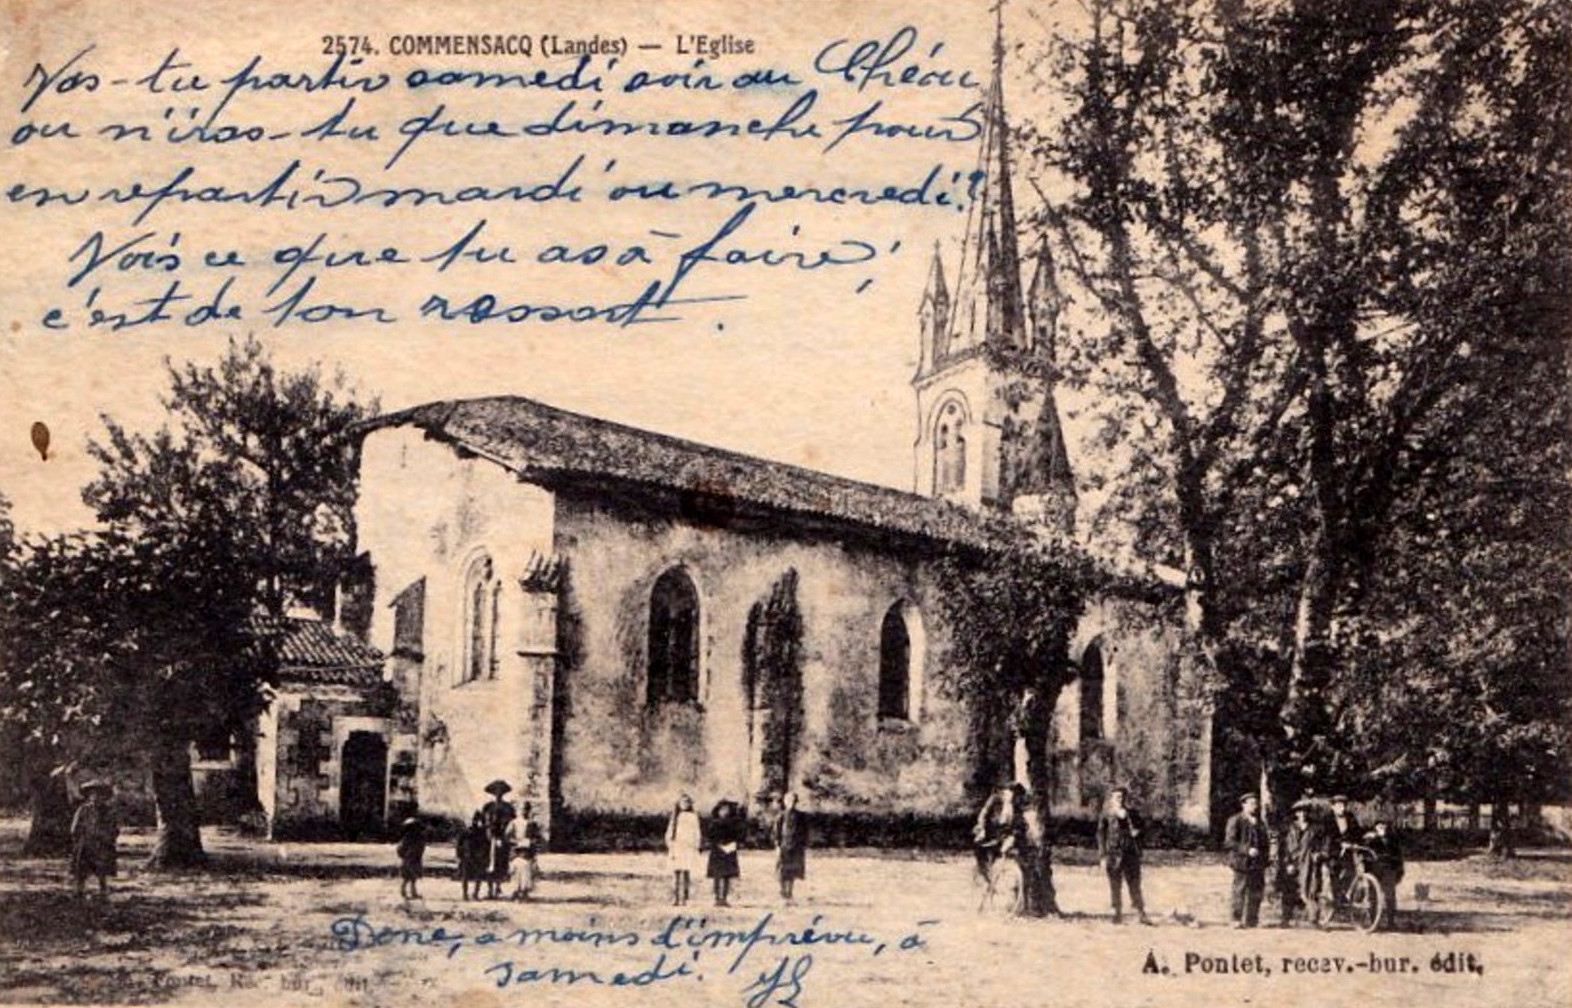 2574. COMMENSACQ (Landes) — L'Eglise
Vas-tu partir samedi soir au Chéou
ou n'iras-tu que dimanche pour
en repartir mardi ou mercredi?
Vois ce que tu as à faire,
c'est de ton ressort.
Donc, à moins d'imprévu, à
samedi.
A. Pontet, recev.-bur. édit.